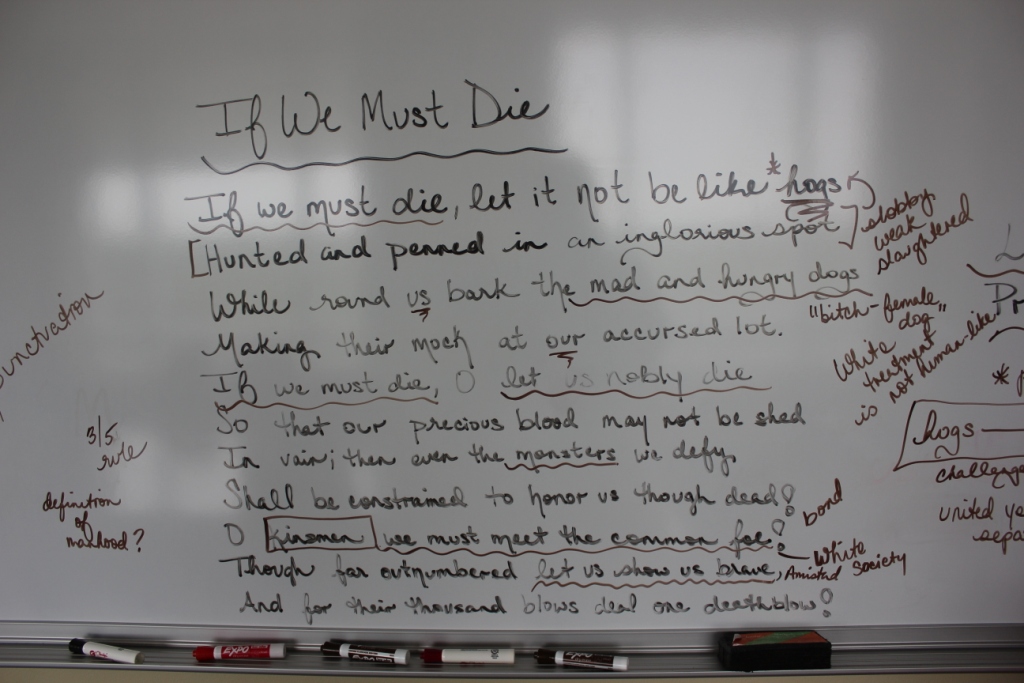 If We Must Die
If we must die, let it not be like *hogs
[Hunted and penned in an inglorious spot]
While round us bark the mad and hungry dogs
Making their mock at our accursed lot.
If we must die, O let us nobly die
So that our precious blood may not be shed
In vain; then even the monsters we defy
Shall be constrained to honor us though dead!
O kinsmen we must meet the common foe!
Though far outnumbered let us show us brave,
And for their thousand blows deal one deathblow!
slobby
weak
slaughtered
"bitch-female
dog"
White
treatment
is not human-like
bond
White
Amistad Society
punctuation
3/5
rule
definition
of
manhood?
L
Pr
*
hogs
united
EXPO